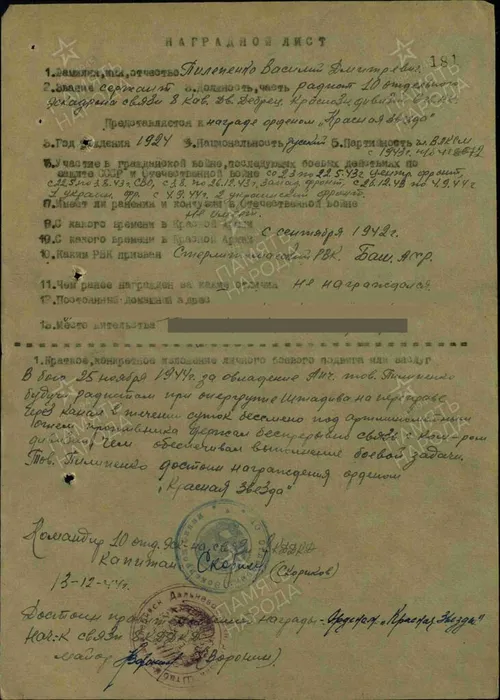 НАГРАДНОЙ ЛИСТ
181
1. Фамилия, имя, отчество Пилипенко Василий Дмитриевич
2. Звание сержант 3. Должность, часть радист 20 отдельного
эскадрона связи 8 кав. Дв. Дебрец. Краснозн. дивизии
Представляется к награде орденом „Красная Звезда"
3. Год рождения 1924 4. Национальность русский 5. Партийность чл. ВЛКСМ
с 1943г.
6. Участие в гражданской войне, последующих боевых действиях по
защите СССР и Отечественной войне с 23 по 22.5.43г Центр. фронт,
с 22.5 по 3.8.43г. СВО, с 3.8. по 26.12.43г. Запад. фронт, с 26.12.43 по 4.9.44г
2 украин. фр. с 4.9.44г. 2 украинский фронт.
7. Имеет ли ранения и контузии в Отечественной войне
не имеет.
8. С какого времени в Красной
с сентября 1942г.
9. С какого времени в Красной Армии
10. Каким РВК призван Стерлитамакский РВК. Баш. АССР.
11. Чем ранее награжден за какие отличия не награждался
12. Постоянный домашний адрес
13. Место жительства
1. Краткое, конкретное изложение личного боевого подвига или заслуг
В бою 25 ноября 1944г. за овладение тов. Пилипенко
будучи радистом при опергруппе штадива на переправе
через канал в течении суток бессменно под артминометным
огнем противника держал беспрерывно связь с ком-ром
дивизии, чем обеспечивал выполнение боевой задачи.
Тов. Пилипенко достоин награждения орденом
„Красная Звезда"
Командир 20 отд. эск-на связи
капитан Скориков (Скориков)
13-12-44г.
Достоин правительственной награды - Орденом „Красная Звезда"
Нач-к связи 8 КДКД
майор Воронин (Воронин).
ПАМЯТЬ
НАРОДА